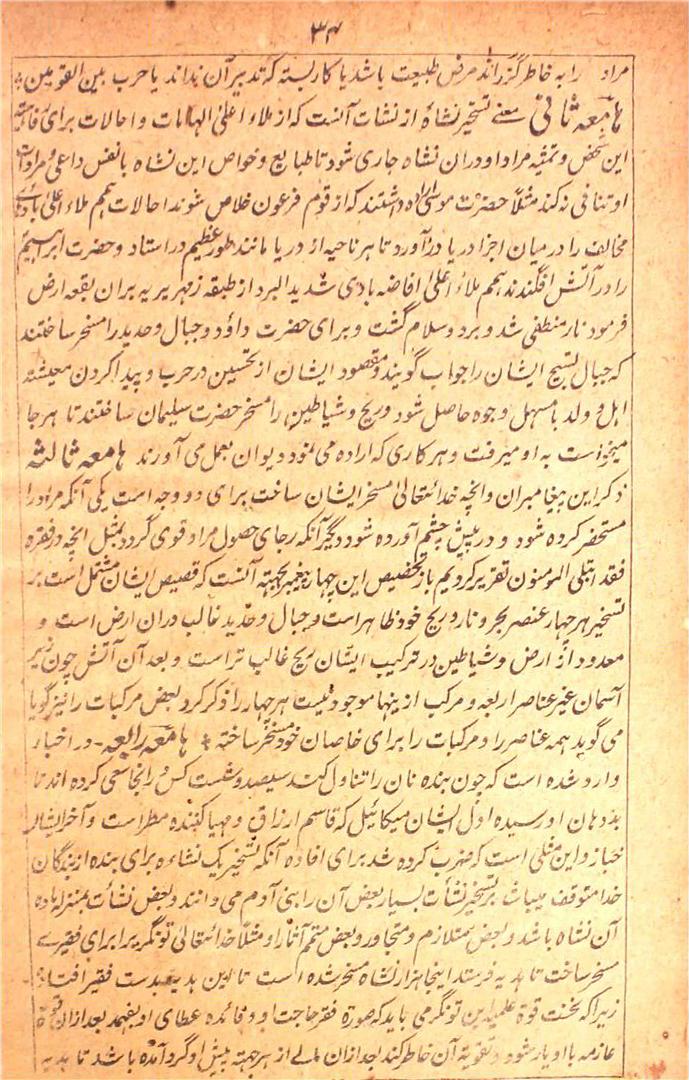 ۳۴
مراد را به خاطر گزراند مرض طبیعت باشد یا کار بسته که تدبیر آن نداند یا حرب بین القومین
هامعه ثانی معنے تسخیر نشاہ از نشات آنست که از ملاء اعلیٰ الهامات و احالات برای
این شخص و تمثیه مراد او دران نشاه جاری شود تا طبایع و خواص این نشاه با نفس داعی و مراد
او تنافی نه کند مثلاً حضرت موسیٰ اراده داشتند که از قوم فرعون خلاص شوند احالات همم ملاء اعلیٰ
مخالف را درمیان اجزا دریا در آورد تا هر ناحیه از دریا مانند طور عظیم در استاد و حضرت ابراهیم
را در آتش افگندند همم ملاء اعلیٰ افاضه بادی شدید البرد از طبقه زمهریریه بران بقعه ارض
فرمود نار منطفی شد و برد و سلام گشت و برای حضرت داؤد و جبال و حدید را مسخر ساختند
که جبال بتسبیح ایشان را جواب گویند و مقصود ایشان از تحسین در حرب و پیدا کردن معیشت
اهل و ولد با مسهل وجوه حاصل شود و ریح و شیاطین را مسخر حضرت سلیمان ساختند تا هر جا
میخواست به او میرفت و هر کاری که اراده می نمود دیوان بعمل می آورند هامعه ثالثه
ذکر این پیغامبران و انچه خدا تعالیٰ مسخر ایشان ساخت برای دو وجه است یکی آنکه مراد را
مستحضر کرده شود و در پیش چشم آورده شود دیگر آنکه رجای حصول مراد قوی گردد بمثل انچه در فقره
فقد ابتلی المومنون تقریر کردیم باز تخصیص این چهار پیغمبر بجهته آنست که قصیص ایشان مشتمل است بر
تسخیر هر چهار عنصر بحر و نار و ریح خود ظاهر است و جبال و حدید غالب دران ارض است و
معدود از ارض و شیاطین در ترکیب ایشان ریح غالب تر است و بعد آن آتش چون زیر
آسمان غیر عناصر اربعه و مرکب از ینها موجود نیست هر چهار را ذکر کرد بعض مرکبات را نیز گویا
می گوید همه عناصر را و مرکبات را برای خاصان خود مسخر ساخته هامعه رابعه در اخبار
وارد شده است که چون بنده نان را تناول کند سیصد و شست کس را نجا سعی کرده اند تا
بدهان او رسیده اول ایشان میکائیل که قاسم ارزاق و مهیا کننده مطر است و آخر ایشان
خباز و این مثلی است که ضرب کرده شد برای افاده آنکه تسخیر یک نشاه برای بنده از بندگان
خدا متوقف میباشد بر تسخیر نشأت بسیار بعض آن را بنی آدم می دانند و بعض نشأت بمنزله ماده
آن نشاه باشد و بعض متلازم و متجاور و بعض متمم آثار او مثلاً خدا تعالیٰ تونگر یرا برای فقیرے
مسخر ساخت تا هدیه فرستد اینجا هزار نشاه مسخر شده است تا این هدیه بدست فقیر افتاد
زیرا که نخست قوة علمیه این تونگر می باید که صورة فقر حاجت او و فائده عطای او بفهمد بعد ازان قوة
عازمه با او یار شود و تقویة آن خاطر کند بعد ازان مالے از هر جهته پیش او گرد آمده باشد تا هدیه